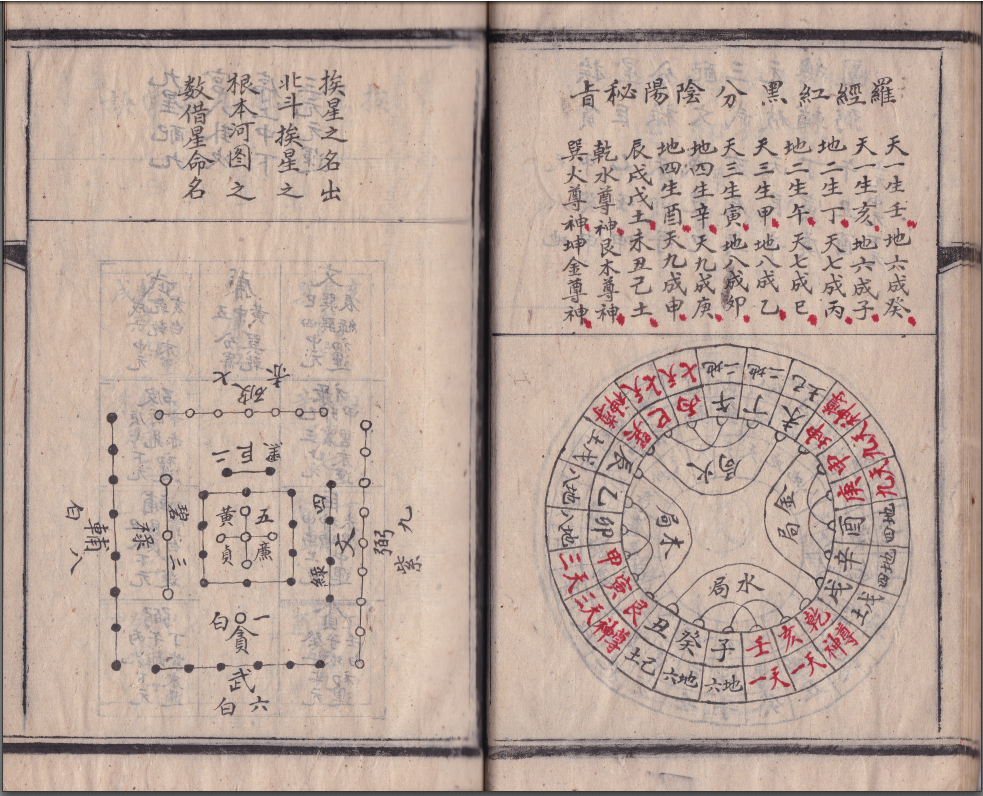 羅經紅黑分陰陽秘旨
天一生壬地六成癸
天一生亥地六成子
地二生丁天七成丙
地二生午天七成巳
天三生甲地八成乙
天三生寅地八成卯
地四生辛天九成庚
地四生酉天九成申
辰戌戊土未丑己土
乾水尊神艮木尊神
巽火尊神坤金尊神
地二
地二
己土
尊神
天九
天九
地四
地四
戊土
尊神
天一
天一
地六
地六
己土
尊神
天三
天三
地八
地八
戊土
尊神
天七
天七
午
丁
未
坤
申
庚
酉
辛
戌
乾
亥
壬
子
癸
丑
艮
寅
甲
卯
乙
辰
巽
巳
丙
火局
金局
水局
木局
挨星之名出
北斗挨星之
根本河图之
数借星命名
七破赤
二巨黑
九弼紫
四文綠
五黃廉貞
三碧祿
八輔白
一白貪
六白武